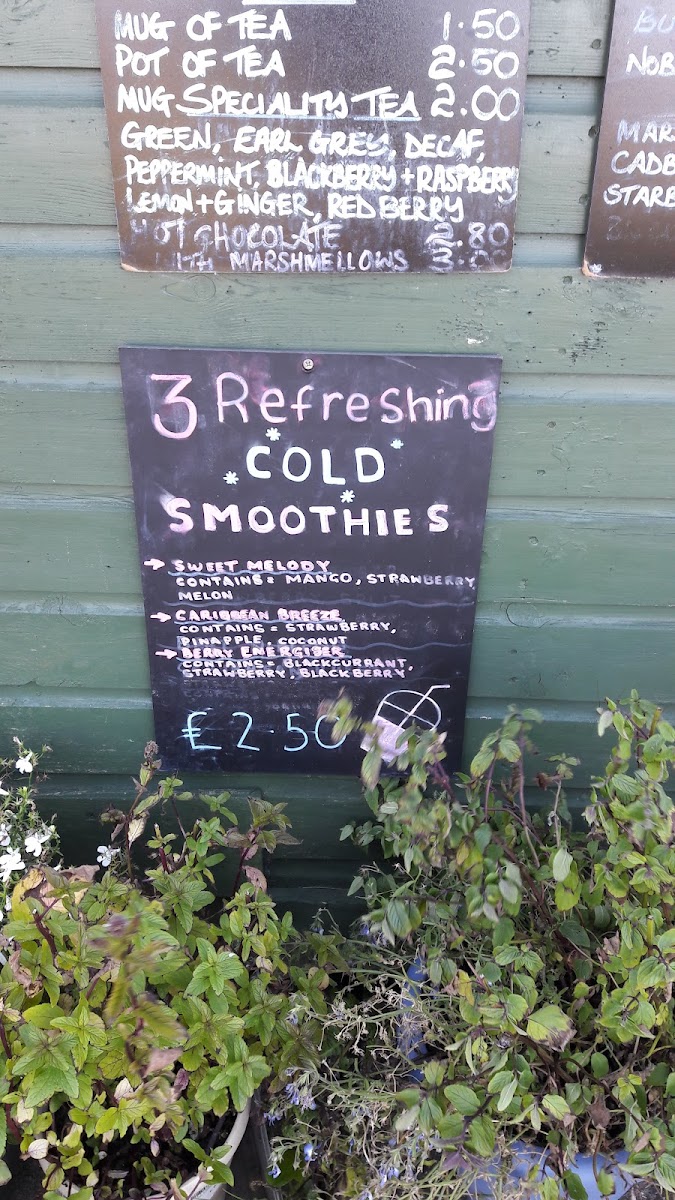 MUG OF TEA 1.50
POT OF TEA 2.50
MUG SPECIALITY TEA 2.00
GREEN, EARL GREY, DECAF,
PEPPERMINT, BLACKBERRY + RASPBERRY
LEMON + GINGER, REDBERRY
HOT CHOCOLATE 2.80
WITH MARSHMELLOWS
BU
NOB
MAR
CADB
STARB
3 Refreshing
COLD
SMOOTHIES
→ SWEET MELODY
CONTAINS = MANGO, STRAWBERRY
MELON
→ CARIBBEAN BREEZE
CONTAINS = STRAWBERRY,
PINAPPLE, COCONUT
→ BERRY ENERGISER
CONTAINS = BLACKCURRANT,
STRAWBERRY, BLACKBERRY
£2.50